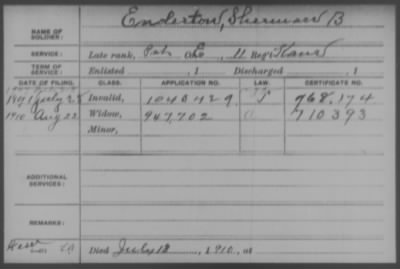 NAME OF SOLDIER: Enderton, Sherman B
SERVICE: Late rank, Co. E, 11 Reg't Kans
TERM OF SERVICE: Enlisted , 1 Discharged , 1
DATE OF FILING. CLASS. APPLICATION NO. CERTIFICATE NO.
1891 July 28 Invalid, 1040429 968,174
1910 Aug 22 Widow, 947,702 710393
Minor,
ADDITIONAL SERVICES:
REMARKS:
Died July 18, 1910, at